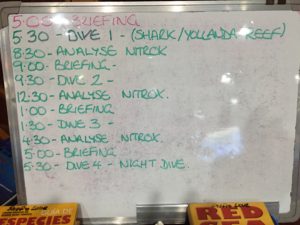 5:05 BRIEFING
5:30 - DIVE 1 - (SHARK/YOLLANDA REEF)
8:30 - ANALYSE NITROX
9:00 - BRIEFING -
9:30 - DIVE 2 -
12:30 - ANALYSE NITROX.
1:00 - BRIEFING
1:30 - DIVE 3 -
4:30 - ANALYSE NITROX.
5:00 - BRIEFING
5:30 - DIVE 4 - NIGHT DIVE.
GUIA DE
ESPECIES
RED
SEA